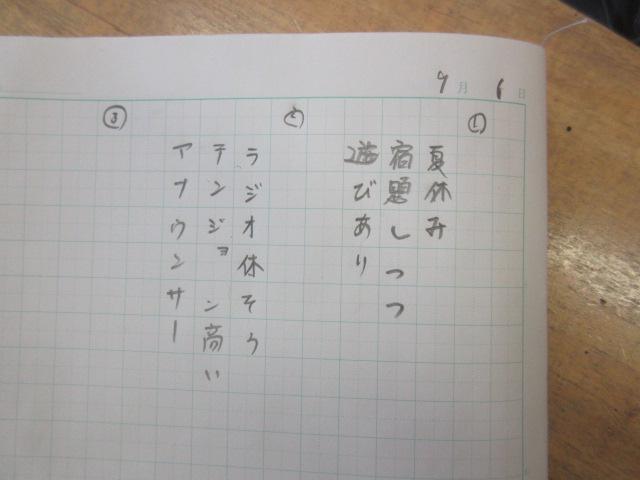 9月6日
①
夏休み
宿題しつつ
遊びあり
②
ラジオ休そう
テンジョン高い
アナウンサー
③